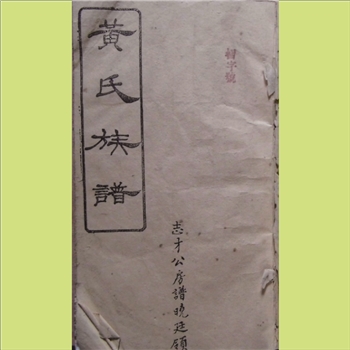 黃氏族譜
字號
志才公房譜晚廷